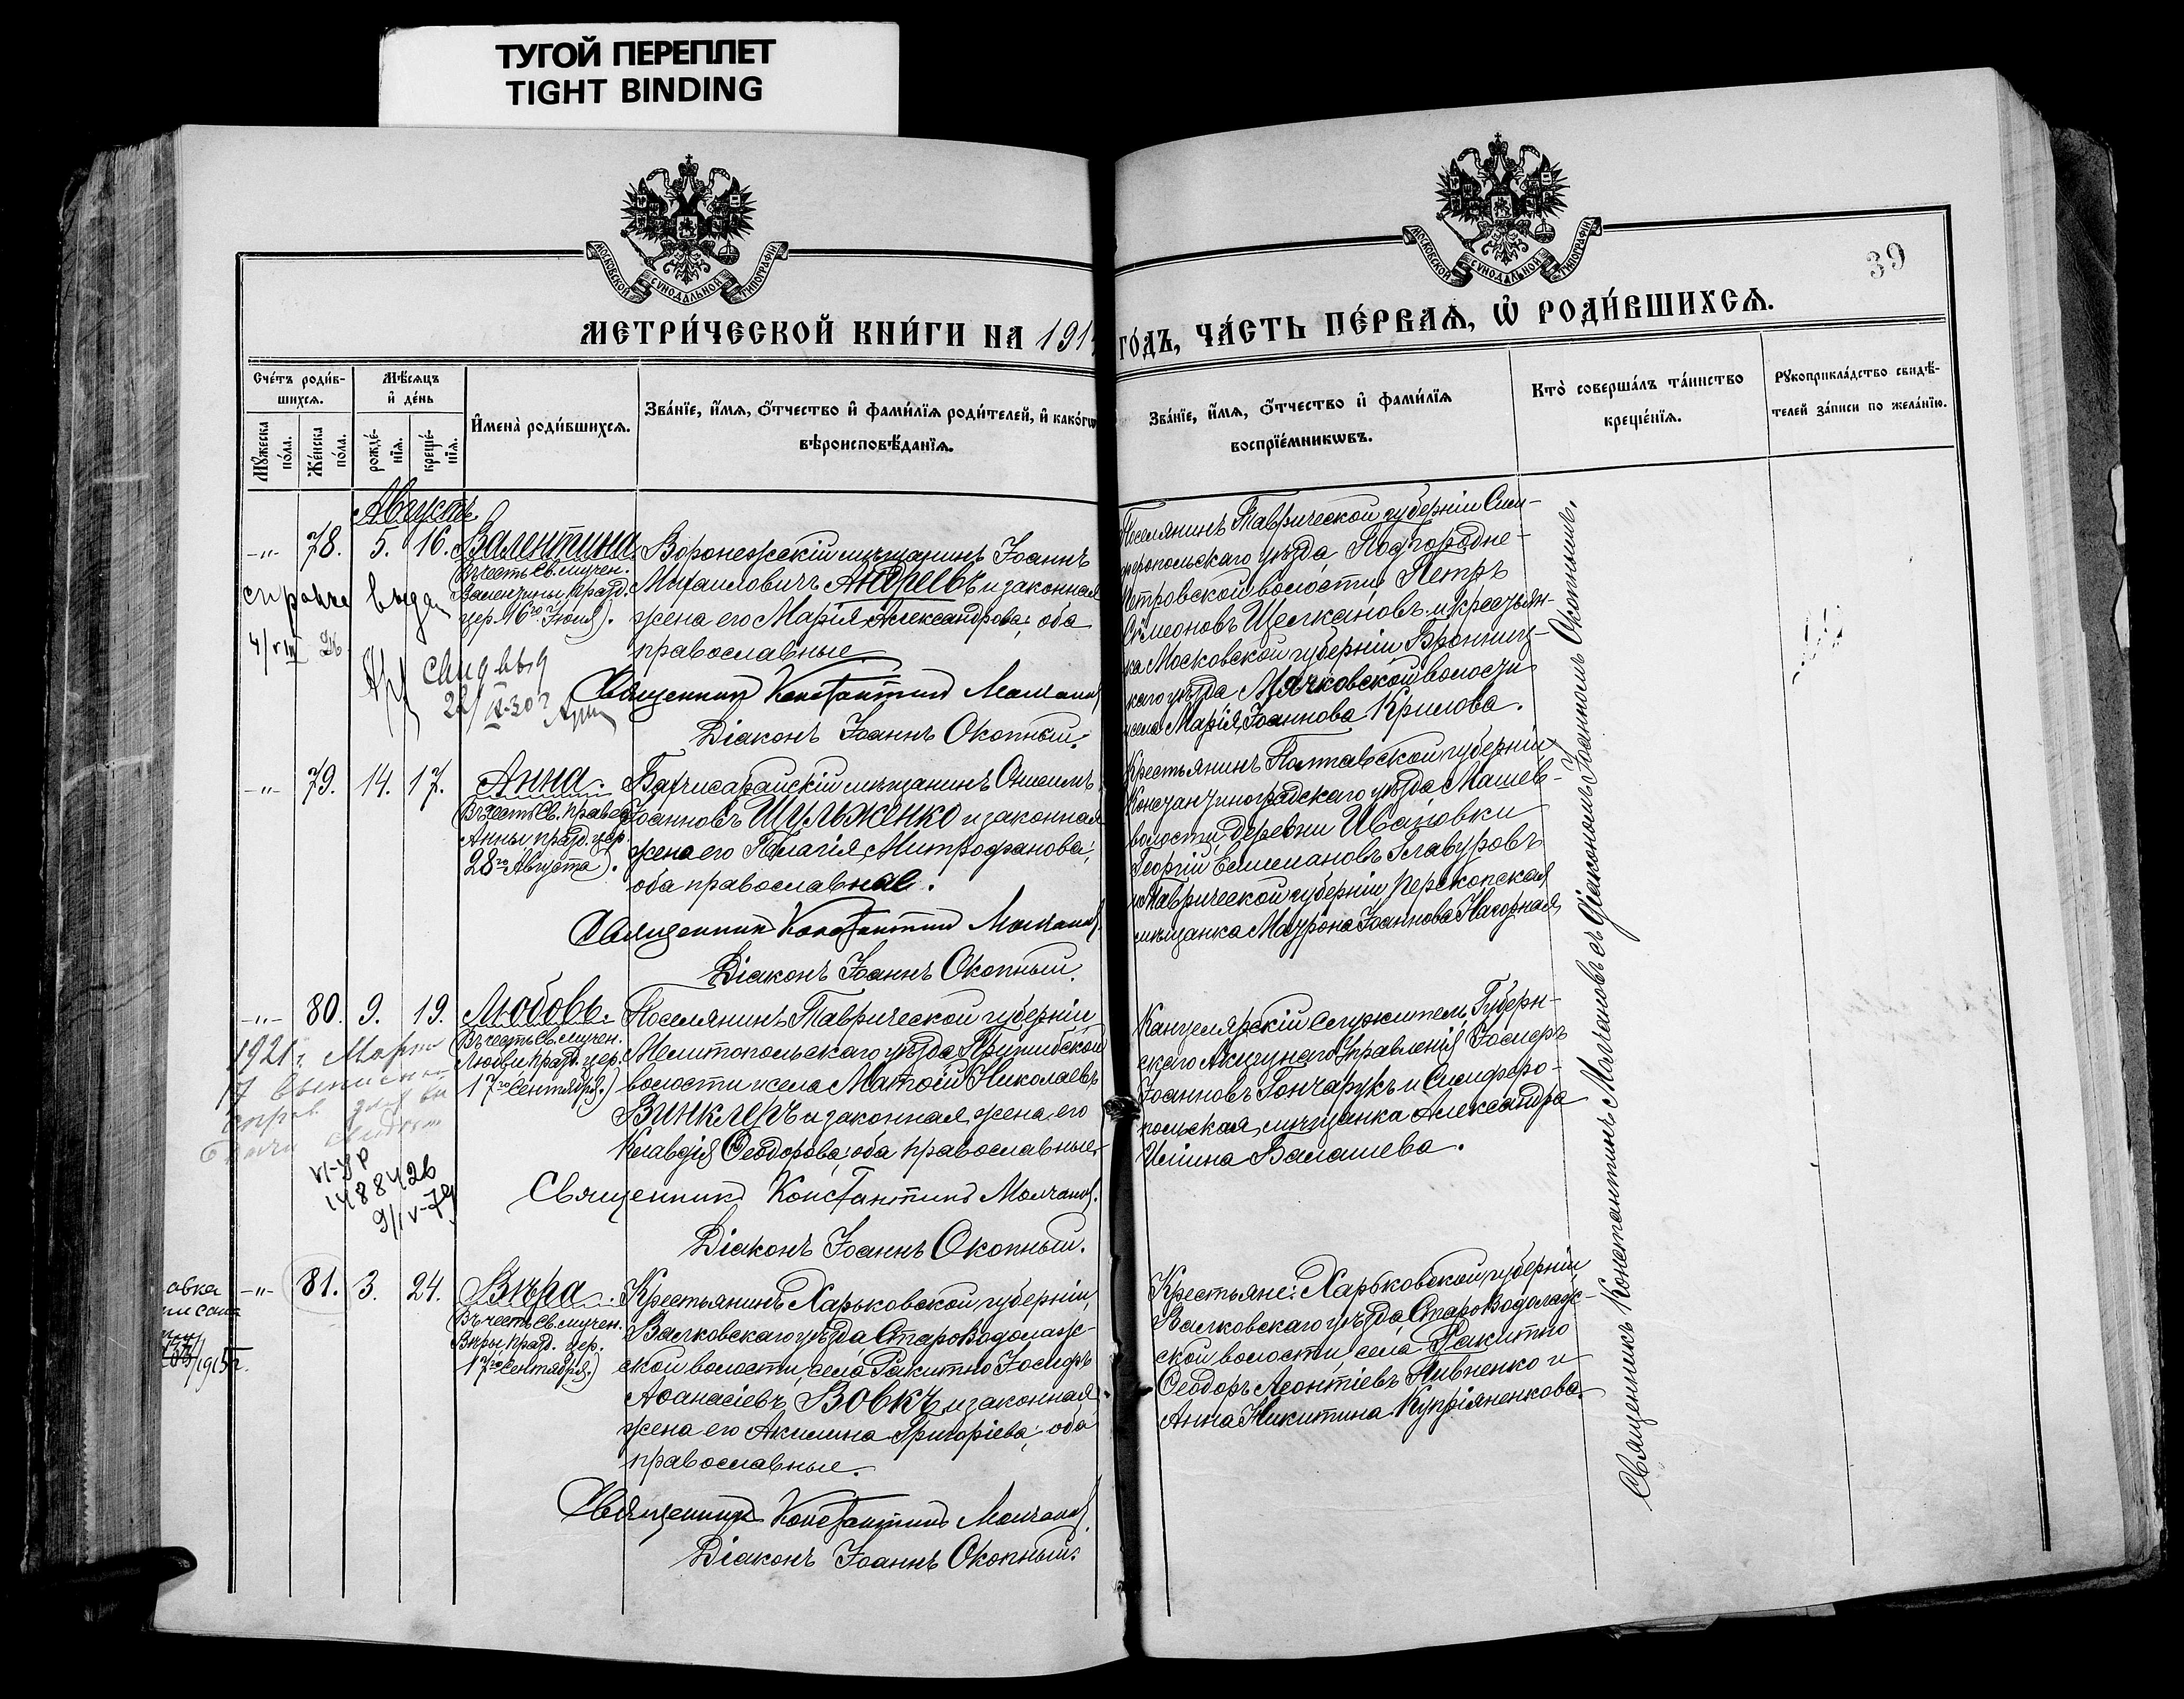 ТУГОЙ ПЕРЕПЛЕТ
TIGHT BINDING
МОСКОВСКОЙ СѴНОДАЛЬНОЙ ТИПОГРАФІИ
МОСКОВСКОЙ СѴНОДАЛЬНОЙ ТИПОГРАФІИ
39
МЕТРИ́ЧЕСКОЙ КНИ́ГИ НА 191
ГО́ДЪ, ЧА́СТЬ ПЕ́РВАѦ, Ѡ РОДИ́ВШИХСѦ.
Сче́тъ роди́в-
шихсѧ.
Мꙋ́жеска по́ла.
Же́нска по́ла.
Мѣ́сѧцъ
и҆ де́нь
рожде́-
нїѧ.
креще́-
нїѧ.
И҆мена̀ роди́вшихсѧ.
Зва́нїе, и҆́мѧ, ѻ҆́тчество и҆ фами́лїѧ роди́телей, и҆ како́гѡ
вѣроисповѣ́данїѧ.
Зва́нїе, и҆́мѧ, ѻ҆́тчество и҆ фами́лїѧ
воспрїе́мникѡвъ.
Кто̀ соверша́лъ та́инство
креще́нїѧ.
Рꙋкоприкла́дство свидѣ́-
телей за́писи по жела́нїю.
Августъ.
-"- 78. 5. 16. Валентина
Въ честь Св. мучен.
Валентины празд.
цер. 16го Іюня).
Воронежскій мѣщанинъ Іоаннъ
Михаиловичъ Андреевъ и законная
жена его Марія Александрова; оба
православные.
Священникъ Константинъ Молчанов
Діаконъ Іоаннъ Окопный.
выдан
22/IX-30г
Поселянинъ Таврической губерніи Сим-
феропольскаго уѣзда, Подгородне-
Петровской волости Петръ
Симеоновъ Щелкановъ и крестьян-
ка Московской губерніи Бронниц-
каго уѣзда Мячковской волости
села Марія Іоаннова Крилова.
-"- 79. 14. 17. Анна.
Въ честь Св. правед.
Анны празд. цер.
28го Августа).
Бахчисарайскій мѣщанинъ Онисимъ
Іоанновъ Шульженко и законная
жена его Пелагія Митрофанова;
оба православные.
Священникъ Константинъ Молчанов
Діаконъ Іоаннъ Окопный.
Крестьянинъ Полтавской губерніи
Константиноградскаго уѣзда Машев-
волости, деревни Ивановки
Георгій
и Таврической губерніи Перекопская
мѣщанка Матрона Іоаннова Нагорная
-"- 80. 9. 19. Любовь.
Въ честь Св. мучен.
Любви празд. цер.
17го Сентября.)
Поселянинъ Таврической губерніи
Мелитопольскаго уѣзда Пришибской
волости и села Матѳій Николаевъ
Винклеръ и законная жена его
Клавдія Ѳеодорова; оба православные.
Священникъ Константинъ Молчанов.
Діаконъ Іоаннъ Окопный.
1921 г. Марта
VI-УР
1488426
9/IV-79
Канцелярскій служитель Губерн-
скаго Акцизнаго Управленія Іосифъ
Іоанновъ Гончарукъ и Симферо-
польская мѣщанка Александра
Балашева.
-"- 81. 3. 24. Вѣра.
Въ честь Св. мучен.
Вѣры празд. цер.
17го Сентября.)
Крестьянинъ Харьковской губерніи,
Валковскаго уѣзда, Староводолаж-
ской волости, села Ракитно Іосифъ
Аѳанасіевъ Вовкъ и законная
жена его Акилина Григоріева; оба
православные.
Священникъ Константинъ Молчанов
Діаконъ Іоаннъ Окопный.
Крестьяне: Харьковской губерніи
Валковскаго уѣзда, Староводолаж-
ской волости, села Ракитно
Ѳеодоръ Леонтіевъ Пивненко и
Анна Никитина Купріяненкова.
Священникъ Константинъ Молчановъ съ Діакономъ Іоанномъ Окопнымъ.